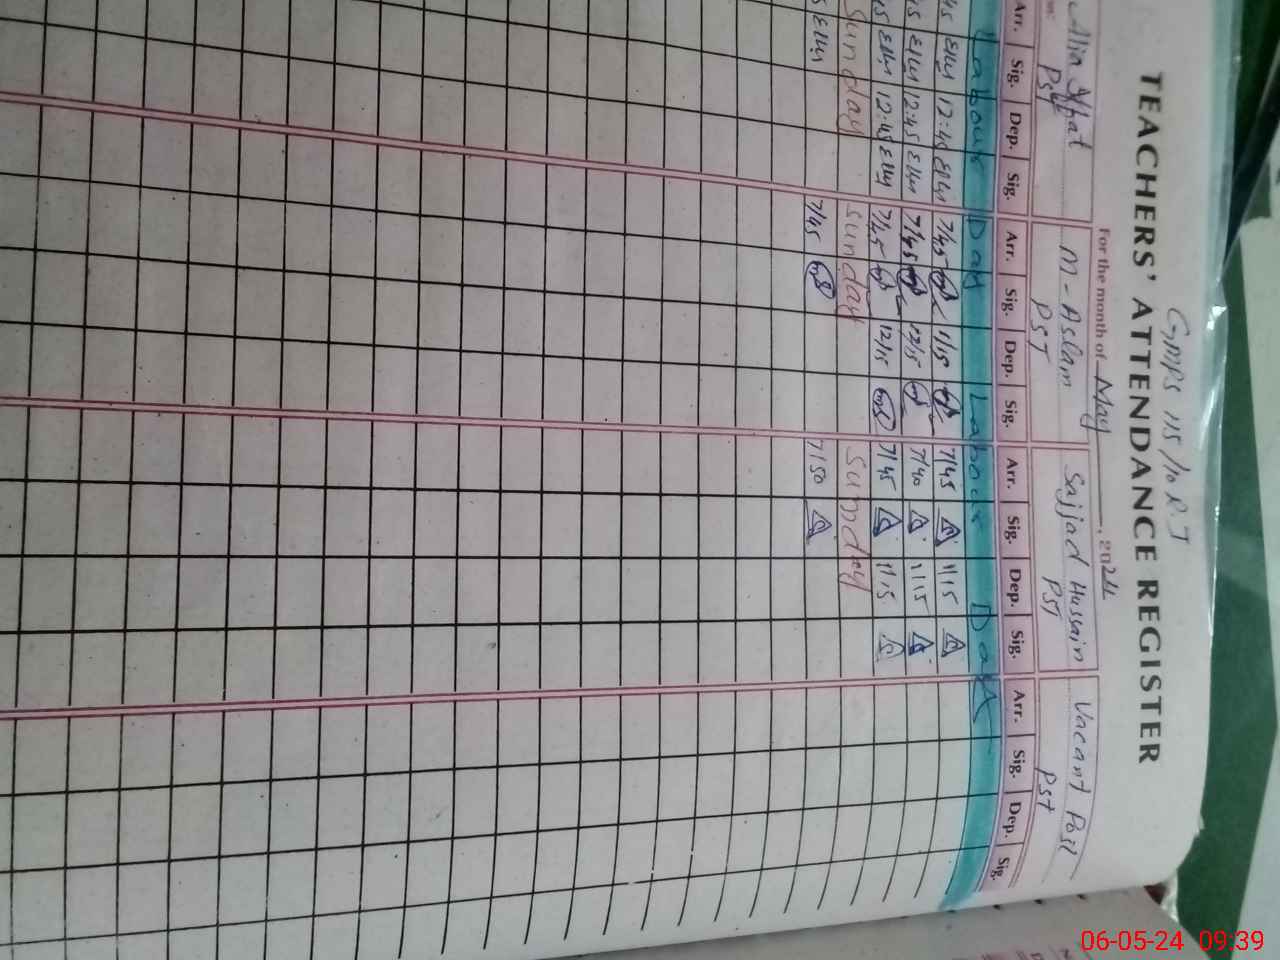 GMPS 115/10 R.J
TEACHERS' ATTENDANCE REGISTER
For the month of May, 2024
Alia M-Aslam Sajjad Hussain Vacant Post
PST PST PST PST
Arr. Sig. Dep. Sig. Arr. Sig. Dep. Sig. Arr. Sig. Dep. Sig. Arr. Sig. Dep. Sig.
Labour Day Labour Day
12:45 7/45 11/15 7/45 11/15
12:45 7/45 12/15 7/40 11/15
12:45 7/45 12/15 7/45 11/15
Sunday Sunday Sunday
7/45 7/50
06-05-24 09:39